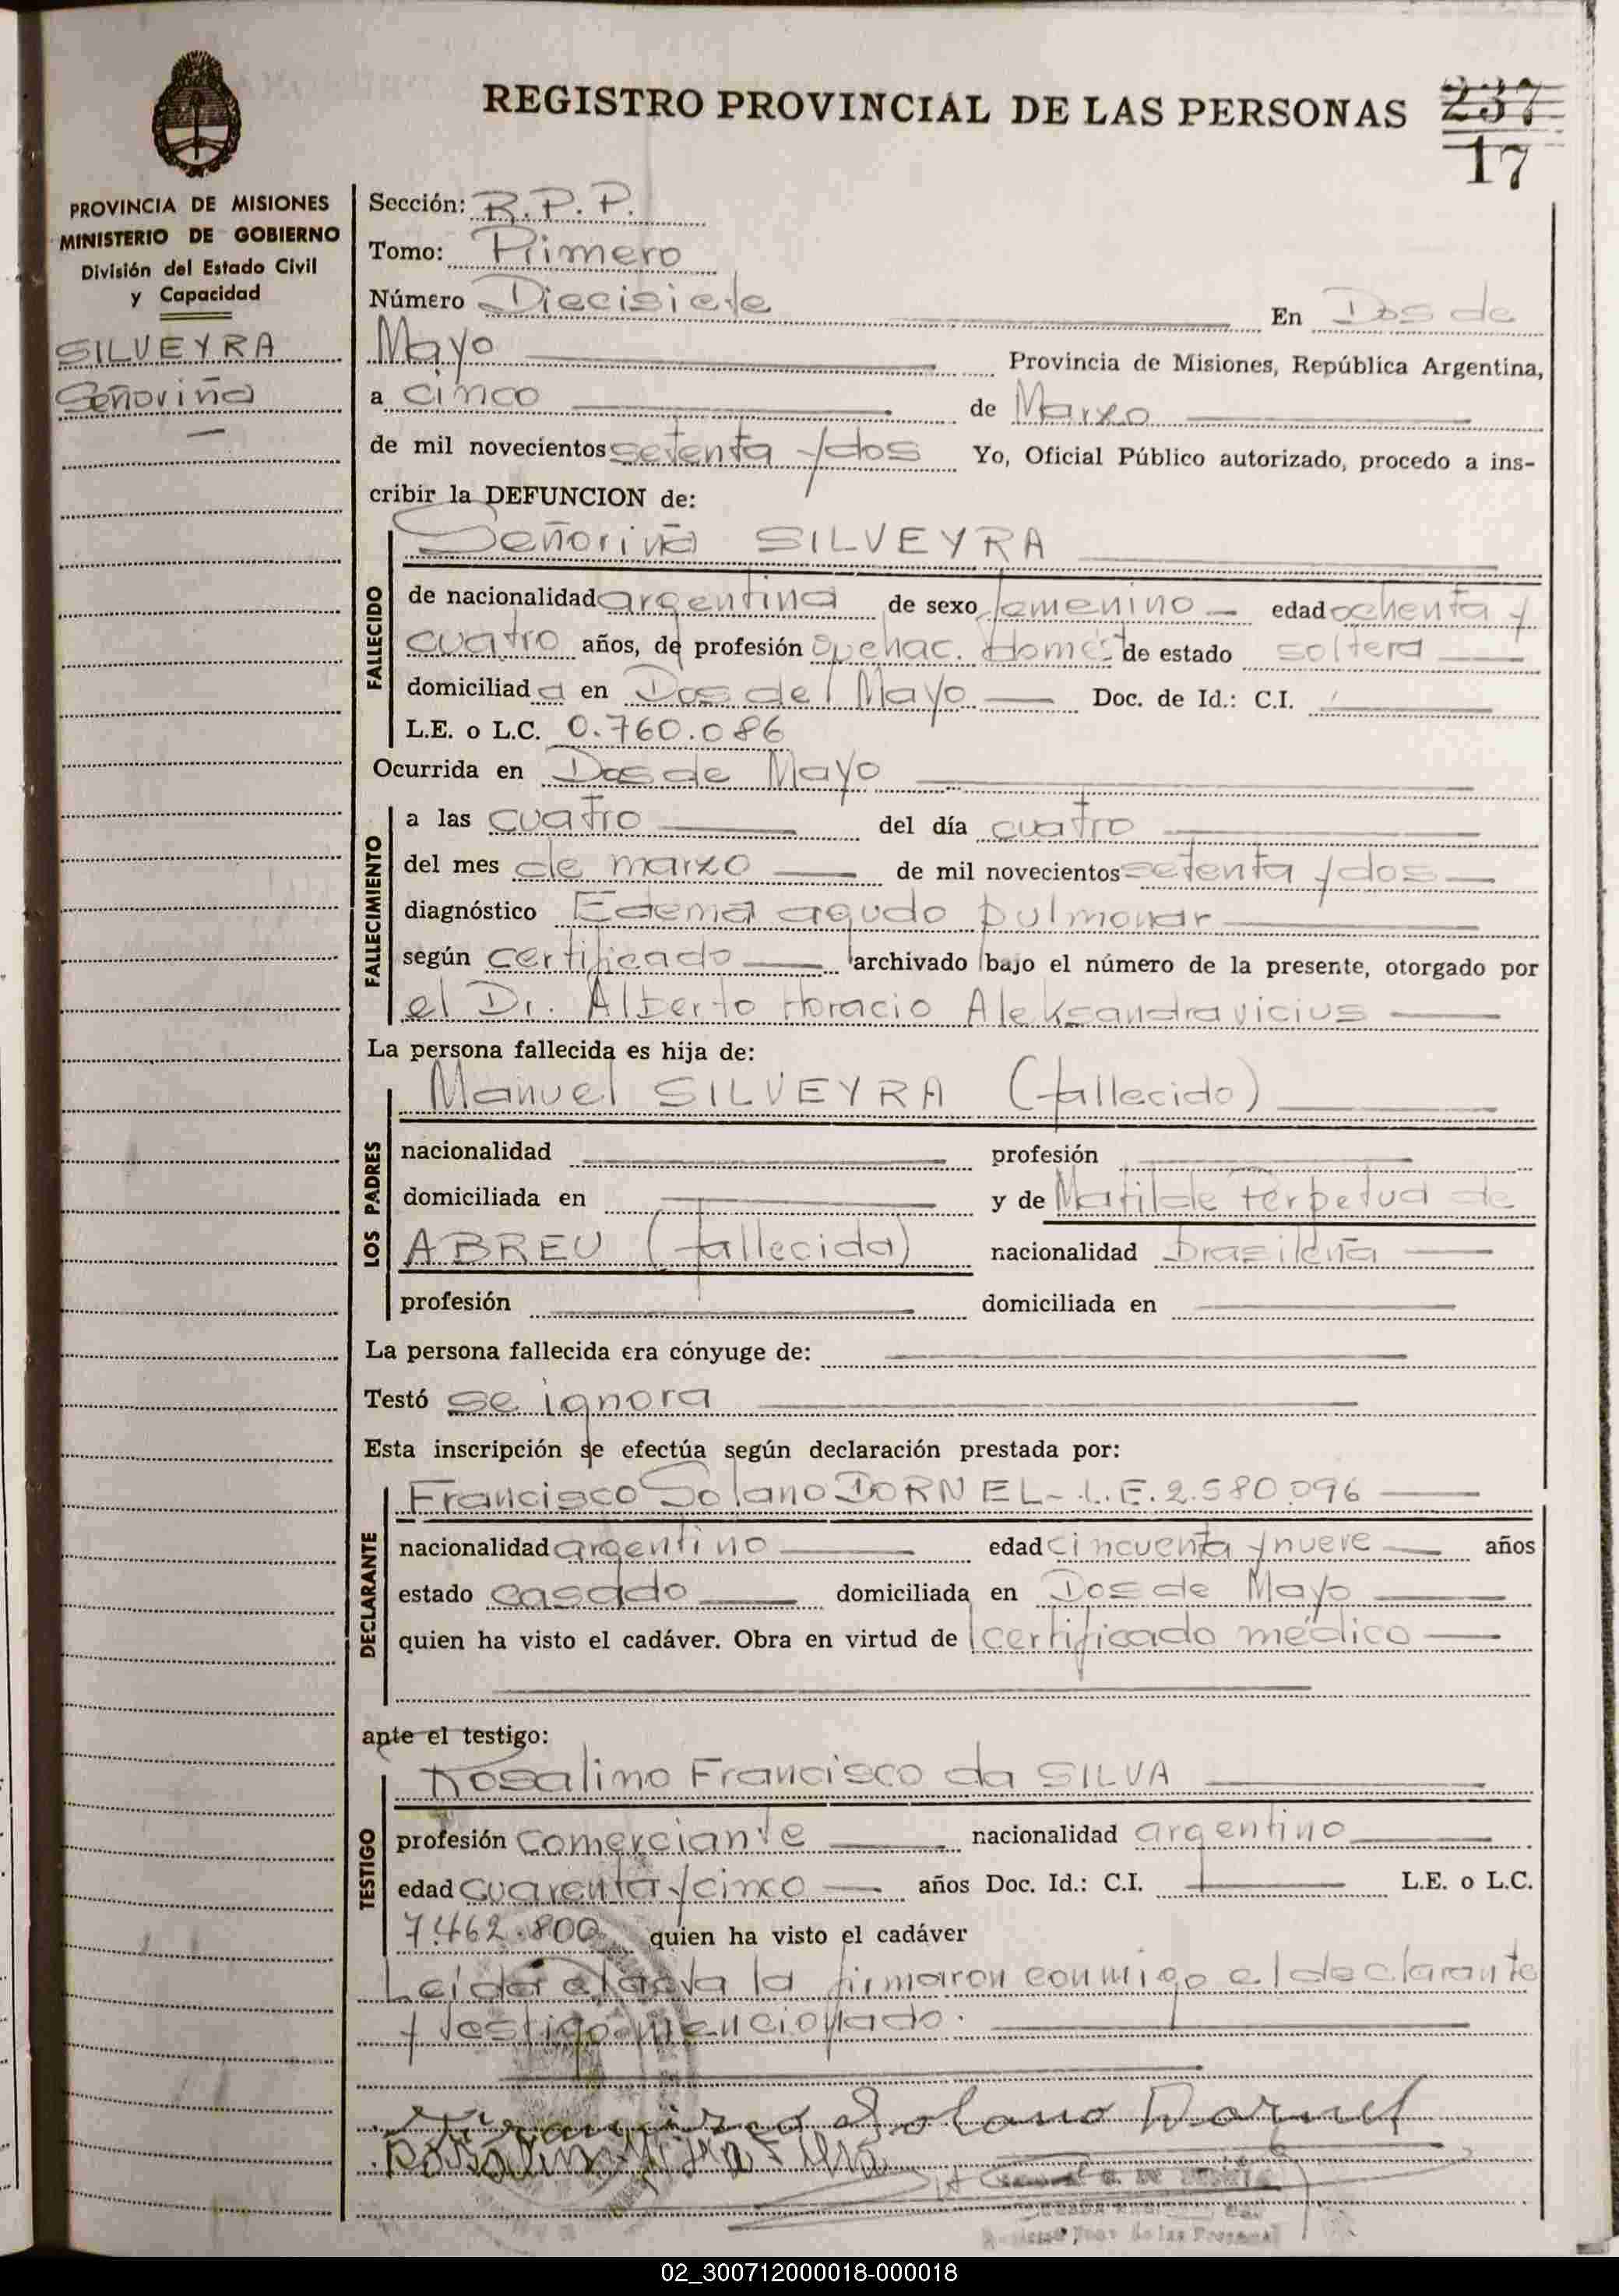 REGISTRO PROVINCIAL DE LAS PERSONAS
237
17
PROVINCIA DE MISIONES
MINISTERIO DE GOBIERNO
División del Estado Civil
y Capacidad
SILVEYRA
Señoriña
Sección: R.P.P.
Tomo: Primero
Número Diecisiete En Dos de
Mayo Provincia de Misiones, República Argentina,
a cinco de Marzo
de mil novecientos setenta y dos Yo, Oficial Público autorizado, procedo a ins-
cribir la DEFUNCION de:
Señoriña SILVEYRA
FALLECIDO
de nacionalidad argentina de sexo femenino edad ochenta y
cuatro años, de profesión Quehac. Domést de estado soltera
domiciliad a en Dos de Mayo Doc. de Id.: C.I.
L.E. o L.C. 0.760.086
Ocurrida en Dos de Mayo
FALLECIMIENTO
a las cuatro del día cuatro
del mes de marzo de mil novecientos setenta y dos
diagnóstico Edema agudo pulmonar
según certificado archivado bajo el número de la presente, otorgado por
el Dr. Alberto Horacio Aleksandravicius
La persona fallecida es hija de:
Manuel SILVEYRA (fallecido)
LOS PADRES
nacionalidad profesión
domiciliada en y de Matilde Perpetua de
ABREU (fallecida) nacionalidad brasileña
profesión domiciliada en
La persona fallecida era cónyuge de:
Testó se ignora
Esta inscripción se efectúa según declaración prestada por:
Francisco Solano DORNEL - L.E. 2.580.096
DECLARANTE
nacionalidad argentino edad cincuenta y nueve años
estado casado domiciliada en Dos de Mayo
quien ha visto el cadáver. Obra en virtud de certificado médico
ante el testigo:
Rosalino Francisco da SILVA
TESTIGO
profesión Comerciante nacionalidad argentino
edad cuarenta y cinco años Doc. Id.: C.I. L.E. o L.C.
7.462.800 quien ha visto el cadáver
Leida el acta la firmaron conmigo el declarante
y testigo mencionado.
Francisco Solano Dornel
02_300712000018-000018